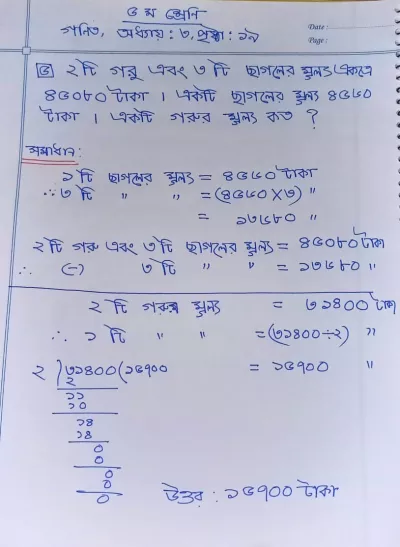 ৫ ম শ্রেণি
গণিত, অধ্যায়: ৩, পৃষ্ঠা: ১৯
Date:
Page:
৫ ২টি গরু এবং ৩টি ছাগলের মূল্য একত্রে
৪৫০৮০ টাকা । একটি ছাগলের মূল্য ৪৫৬০
টাকা । একটি গরুর মূল্য কত ?
সমাধান:
১টি ছাগলের মূল্য = ৪৫৬০ টাকা
∴ ৩টি " " = (৪৫৬০ X ৩) "
= ১৩৬৮০ "
২টি গরু এবং ৩টি ছাগলের মূল্য = ৪৫০৮০ টাকা
∴ (-) ৩টি " " = ১৩৬৮০ "
২টি গরুর মূল্য = ৩১৪০০ টাকা
∴ ১টি " " = (৩১৪০০ ÷ ২) "
২ ) ৩১৪০০ ( ১৫৭০০ = ১৫৭০০ "
২
১১
১০
১৪
১৪
০
০
০
০
০
উত্তর : ১৫৭০০ টাকা